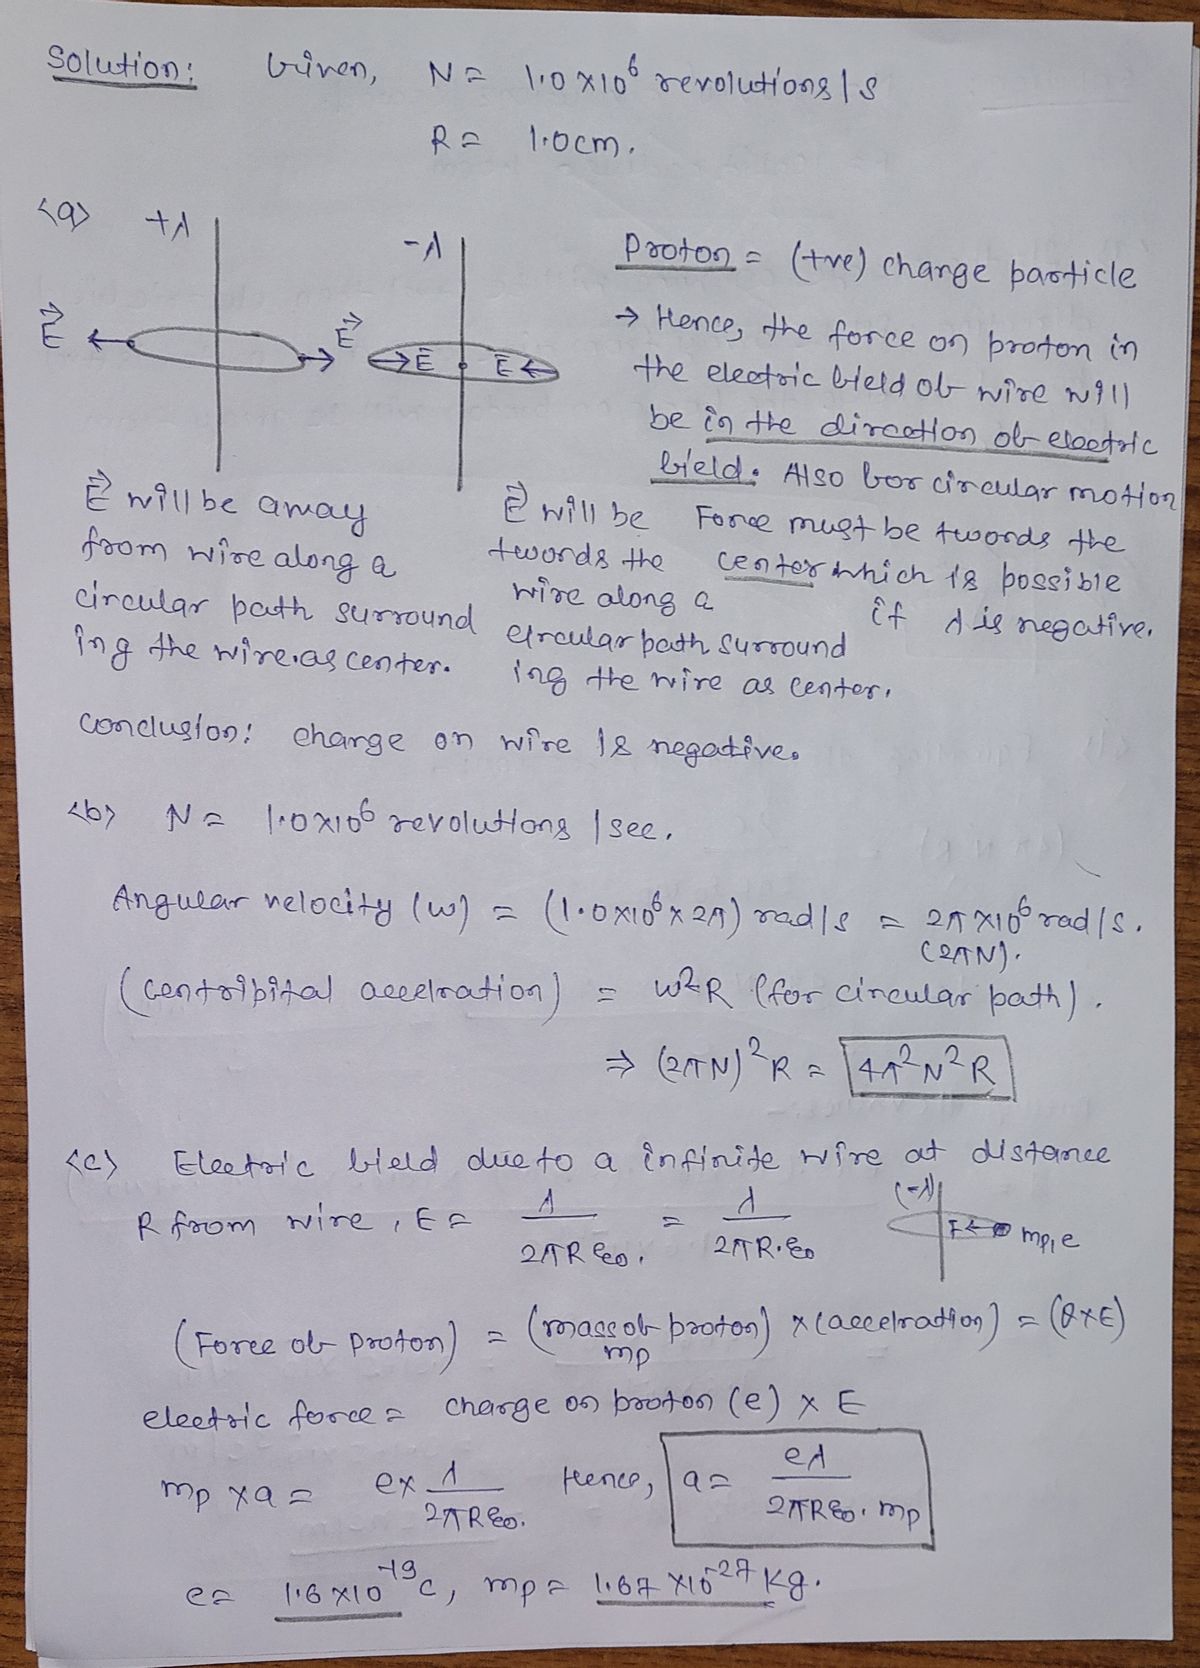 Solution: Given, N = 1.0×10⁶ revolutions/s
R = 1.0cm.
<a> +λ
-λ
Proton = (+ve) change particle
E⃗ E⃗ E⃗ E
→ Hence, the force on proton in
the electric field of wire will
be in the direction of electric
field. Also for circular motion
E⃗ will be away
from wire along a
circular path surround
ing the wire.as center.
E⃗ will be
twords the
wire along a
circular path surround
ing the wire as center.
Force must be twords the
center which is possible
if λ is negative.
Conclusion: charge on wire is negative.
<b> N = 1.0×10⁶ revolutions/sec.
Angular velocity (w) = (1.0×10⁶×2π) rad/s = 2π×10⁶ rad/s.
(2πN).
(centripital accelration) = w²R (for circular path).
⇒ (2πN)²R = 4π²N²R
<c> Electric field due to a infinite wire at distance
R from wire, E = λ/2πRε₀. = λ/2πR.ε₀
(-λ)
F mp, e
(Force of proton) = (mass of proton) × (accelration) = (Q×E)
mp
electric force = charge on proton (e) × E
mp × a = e× λ/2πRε₀. Hence, a = eλ/2πRε₀.mp
e = 1.6×10⁻¹⁹c, mp = 1.67×10⁻²⁷ Kg.